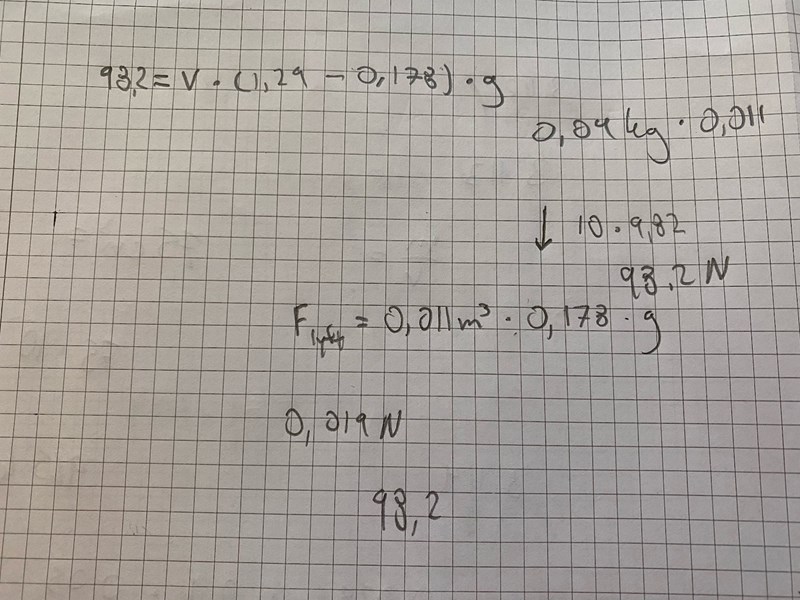 98,2 = V · (1,29 - 0,178) · g
0,04 kg · 0,011
↓ 10 · 9,82
98,2 N
F lyft = 0,011 m³ · 0,178 · g
0,019 N
98,2